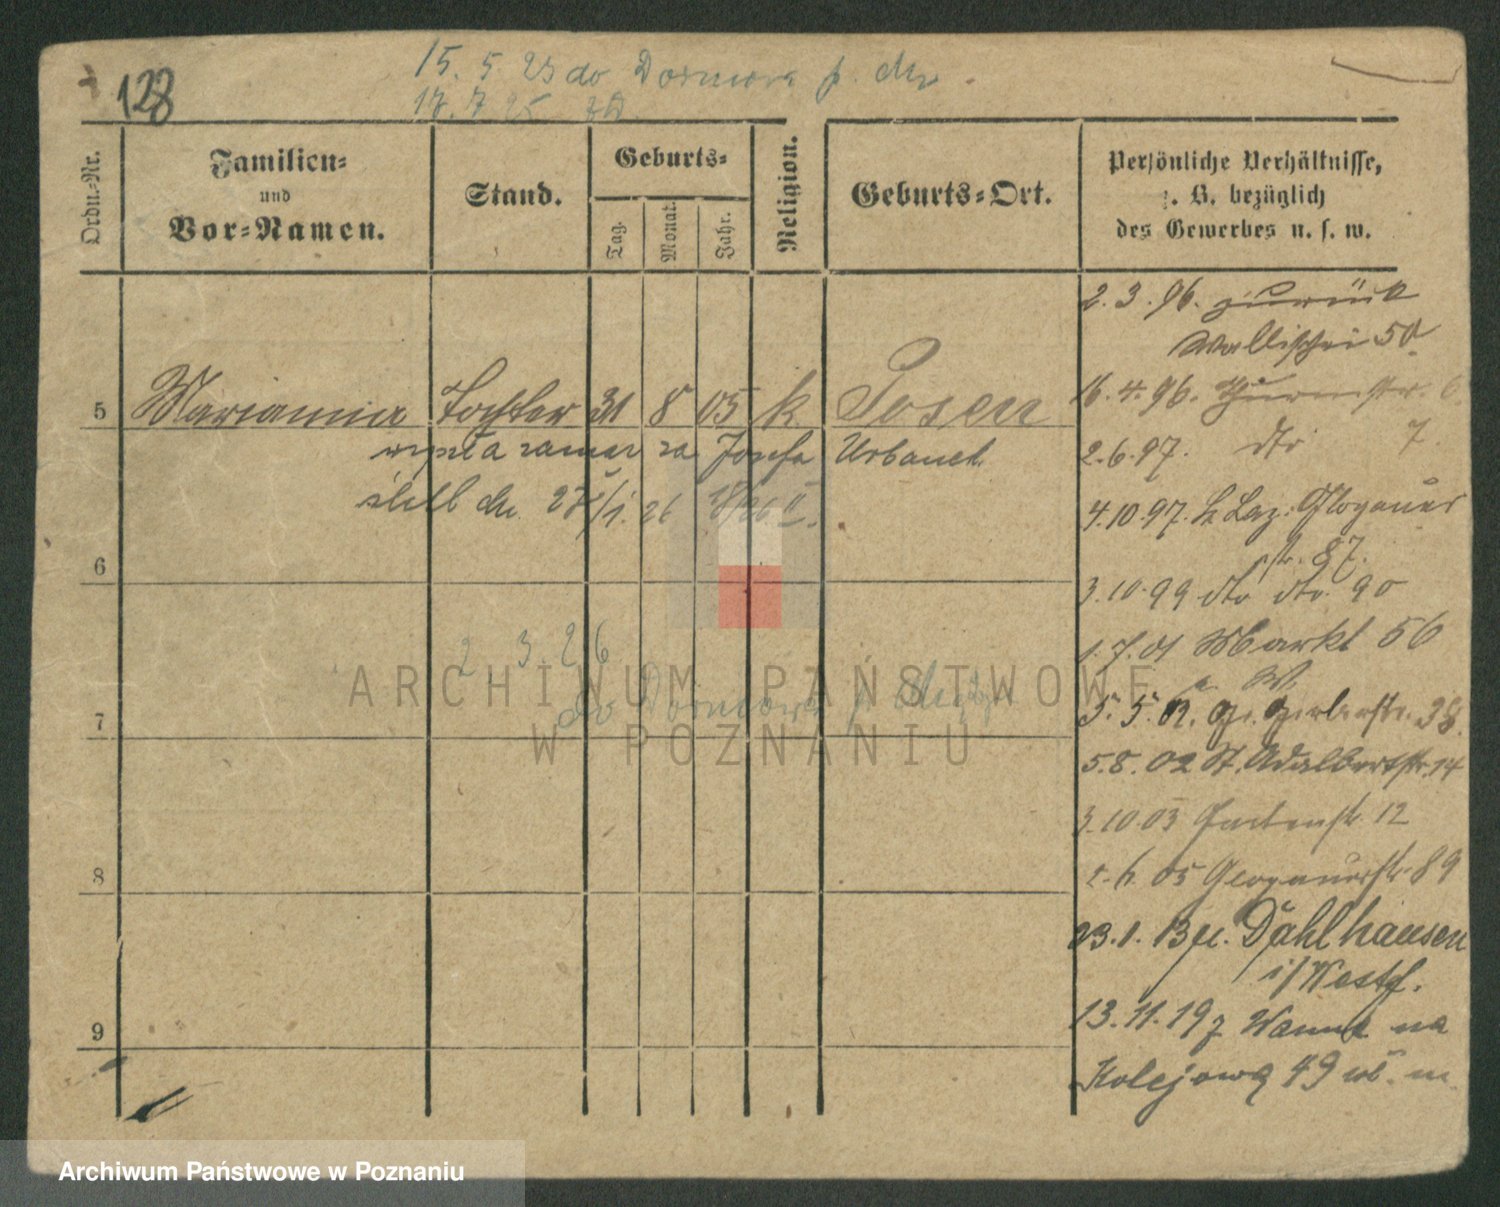 128
15. 5. 25 do Dornowa p.
17. 7. 25
Ordn.-Nr.
Familien-
und
Vor-Namen.
Stand.
Geburts-
Tag.
Monat.
Jahr.
Religion.
Geburts-Ort.
Persönliche Verhältnisse,
z. B. bezüglich
des Gewerbes u. s. w.
2. 3. 96. zurück
Wallischei 50
5 Marianna Tochter 31 8 05 k Posen
16. 4. 96. Thurmstr. 6
wyszła zamąż za Józefa Urbanek
2. 6. 97. dto 7.
ślub dn. 27/1. 26
4. 10. 97. St. Laz. Glogauer
str. 87.
6
3. 10. 99 dto dto. 90
2 3. 26
1. 7. 01 Markt 56
do Dornowa p.
W.
7
5. 5. 02. Gr. Gerberstr. 38.
5. 8. 02 St. Adalbertstr. 14
3. 10. 03 Gartenstr. 12
8
6. 05 Glogauerstr. 89
23. 1. 13 Dahlhausen
i/Westf.
9
13. 11. 19 z Wanne na
Kolejową 49
ARCHIWUM PAŃSTWOWE
W POZNANIU
Archiwum Państwowe w Poznaniu